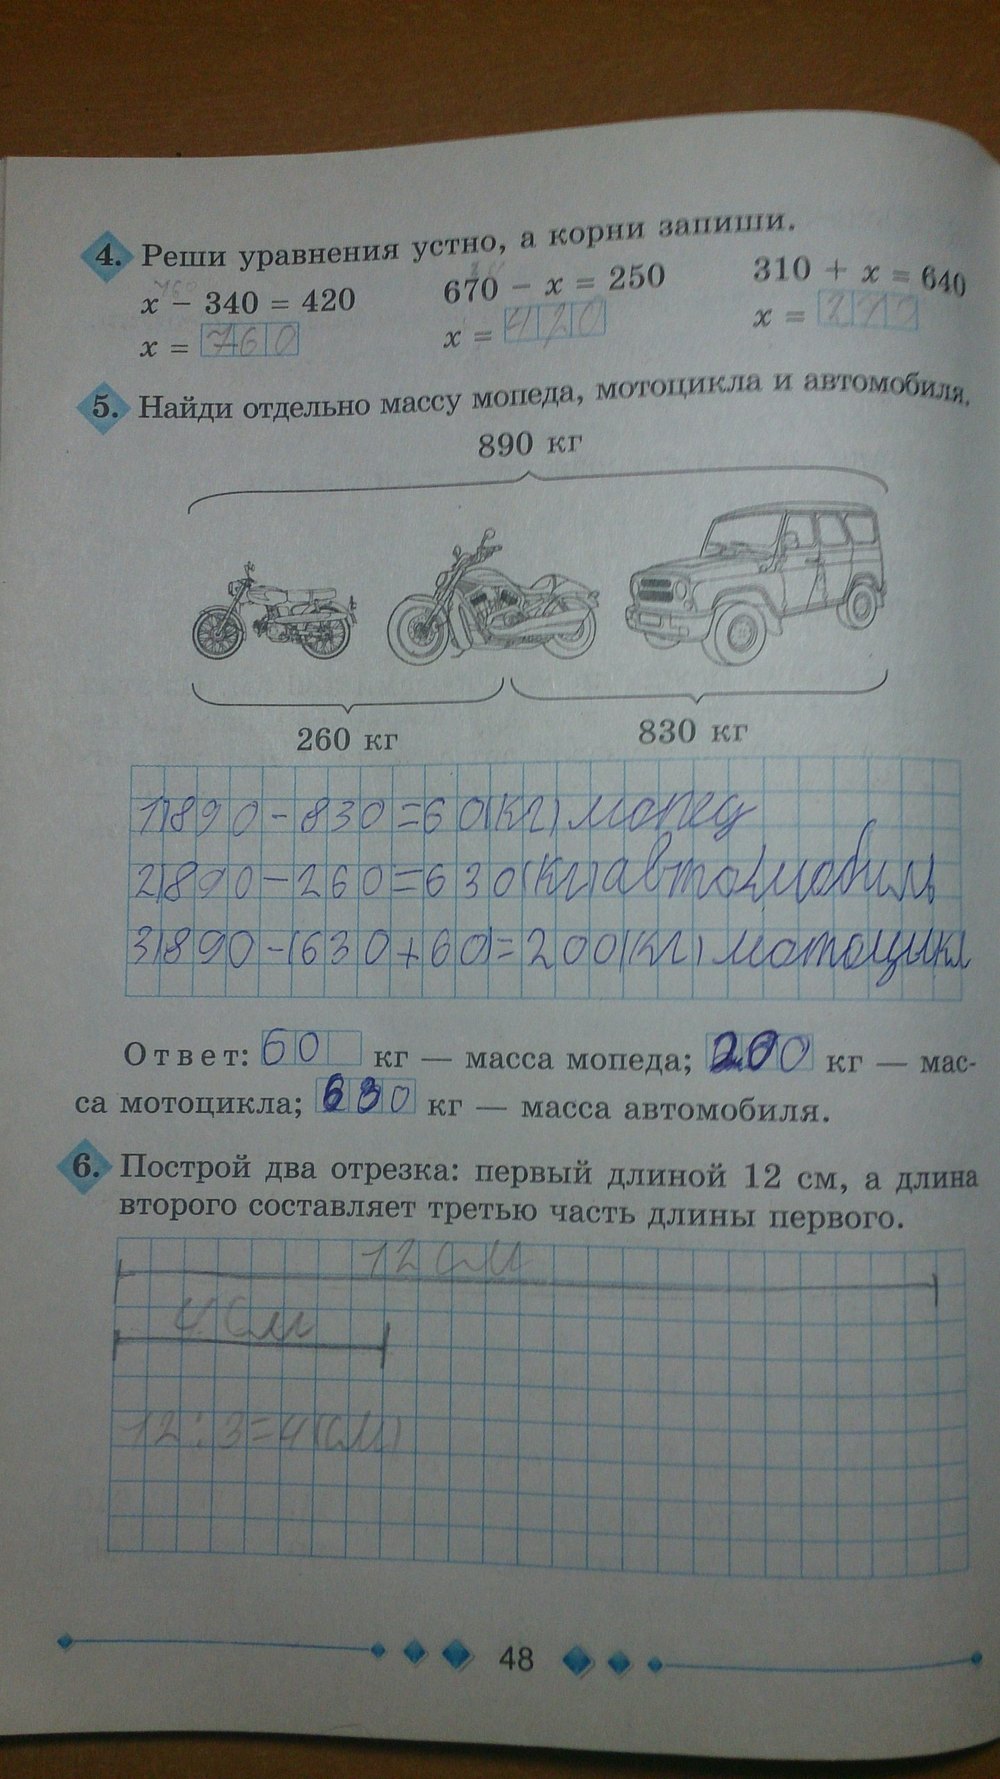 4. Реши уравнения устно, а корни запиши.
x − 340 = 420 670 − x = 250 310 + x = 640
x = 760 x = 420 x =
5. Найди отдельно массу мопеда, мотоцикла и автомобиля.
890 кг
260 кг 830 кг
1) 890 − 830 = 60 (кг) мопед
2) 890 − 260 = 630 (кг) автомобиль
3) 890 − (630 + 60) = 200 (кг) мотоцикл
Ответ: 60 кг — масса мопеда; 200 кг — мас-
са мотоцикла; 630 кг — масса автомобиля.
6. Построй два отрезка: первый длиной 12 см, а длина
второго составляет третью часть длины первого.
12 см
4 см
12 : 3 = 4 (см)
48